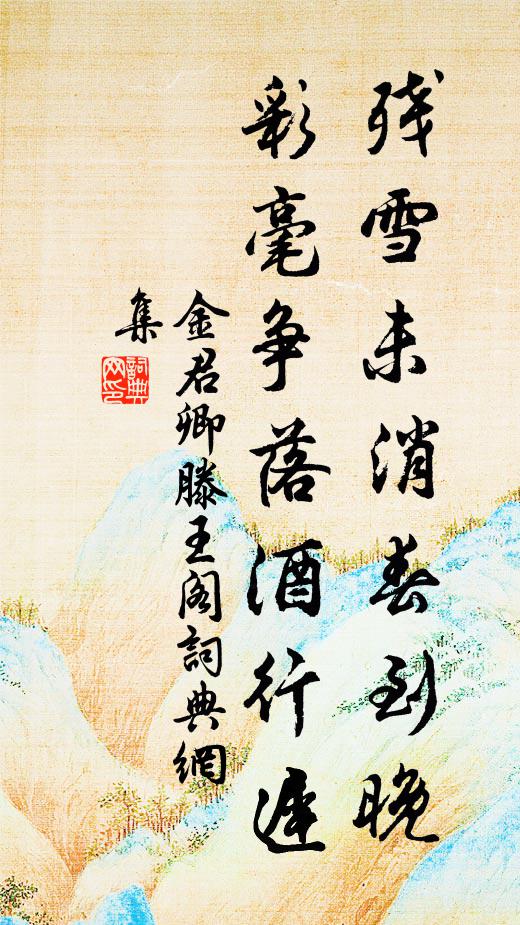 残雪未消春到晚
彩毫争落酒行遲
金君卿滕王阁詞典網
集
詞典
网印